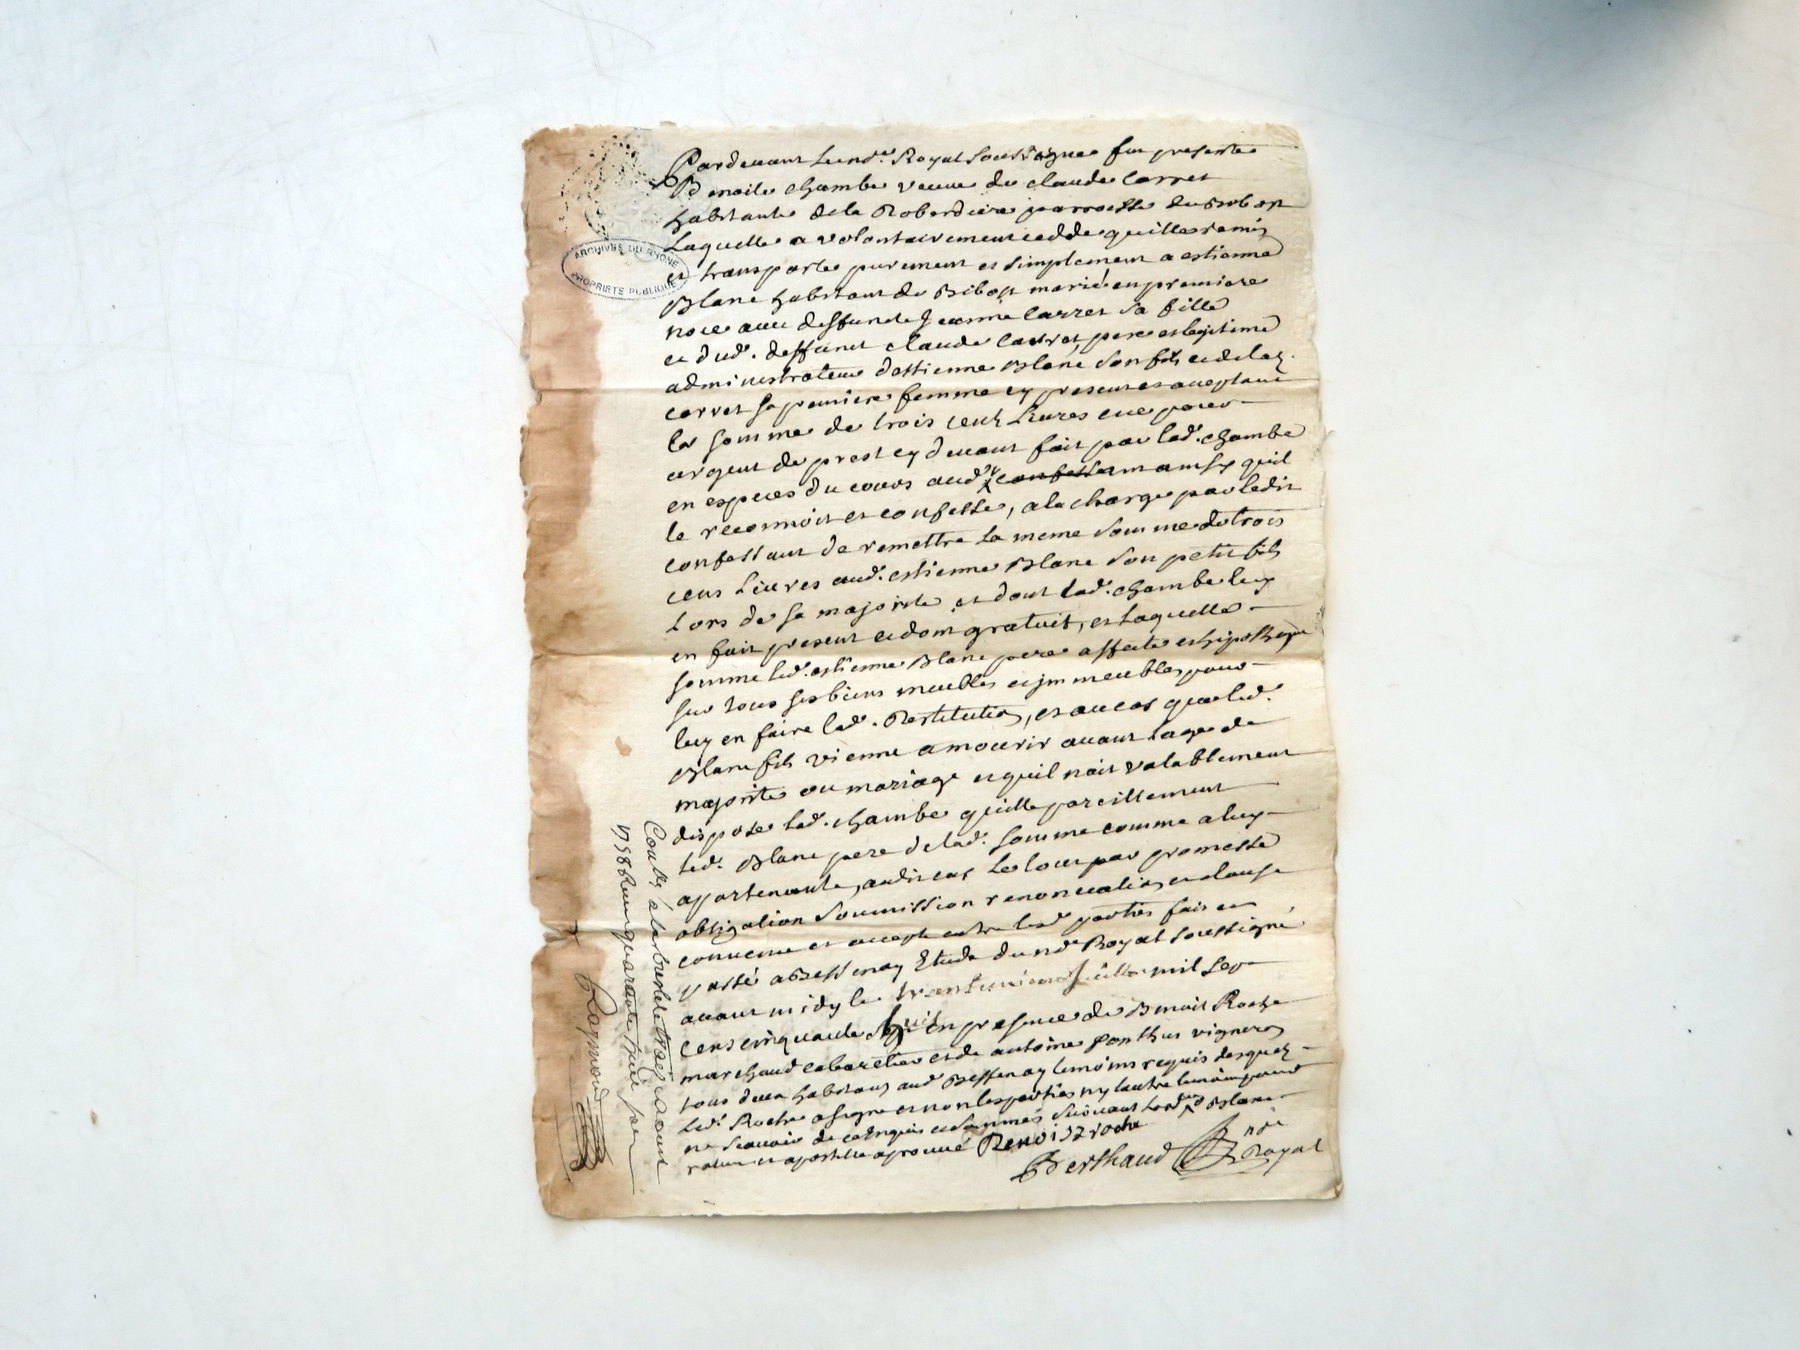 Pardevant le nore. Royal Soussigné fut presente
Benoite chambe veuve de claude Carret
habitante de la Roberdiere parroisse du Bibost
Laquelle a volontairement ceddé quitté remis
et transporté purement et simplement a estienne
Blanc habitant du Bibost marié en premiere
noce avec deffunte Jeanne Carret sa fille
et dud. deffunct claude Carret, pere et legitime
administrateur d'estienne Blanc son fils et de lad.
carret sa premiere femme cy present et acceptant
la somme de trois cent Livres eue pour
argent de prest cy devant fait par lad. chambe
en especes du cours aud. confessant ainsy quil
le reconnoit et confesse, a la charge par ledit
confessant de remettre La meme somme de trois
cens Livres aud. estienne Blanc son petit fils
Lors de sa majorité et dont lad. chambe luy
en fait present et don gratuit, et Laquelle
somme led. estienne Blanc pere affecte et hipotheque
sur tous ses biens meubles et immeubles pour
luy en faire lad. Restitution, et au cas que led.
Blanc fils vienne a mourir avant l'age de
majorité ou mariage et quil n'ait valablement
disposé lad. chambe quitte pareillement
led. Blanc pere de lad. somme comme a luy
apartenante, audit cas Le tout par promesse
obligation soumission renonciation et clause
convenue et accepté entre lesd. parties fait et
passé a Bessenay Etude du nore Royal soussigné
avant midy le trente unieme Juillet mil sept
cens cinquante huit en presence de Benoit Roche
marchand cabaretier et de antoine Ponthus vigneron
tous deux habitans aud. Bessenay temoins requis desquels
led. Roche a signé et non les parties ny l'autre temoin pour
ne scavoir de ce enquis et sommés suivant lord. Blanc
rature et apostille aprouvé Benoist Roche
Berthaud nore Royal
Conlé a larbresle le treize aout
1758 Reçu quarante trois sols
Raymond
ARCHIVES DU RHONE
PROPRIETE PUBLIQUE